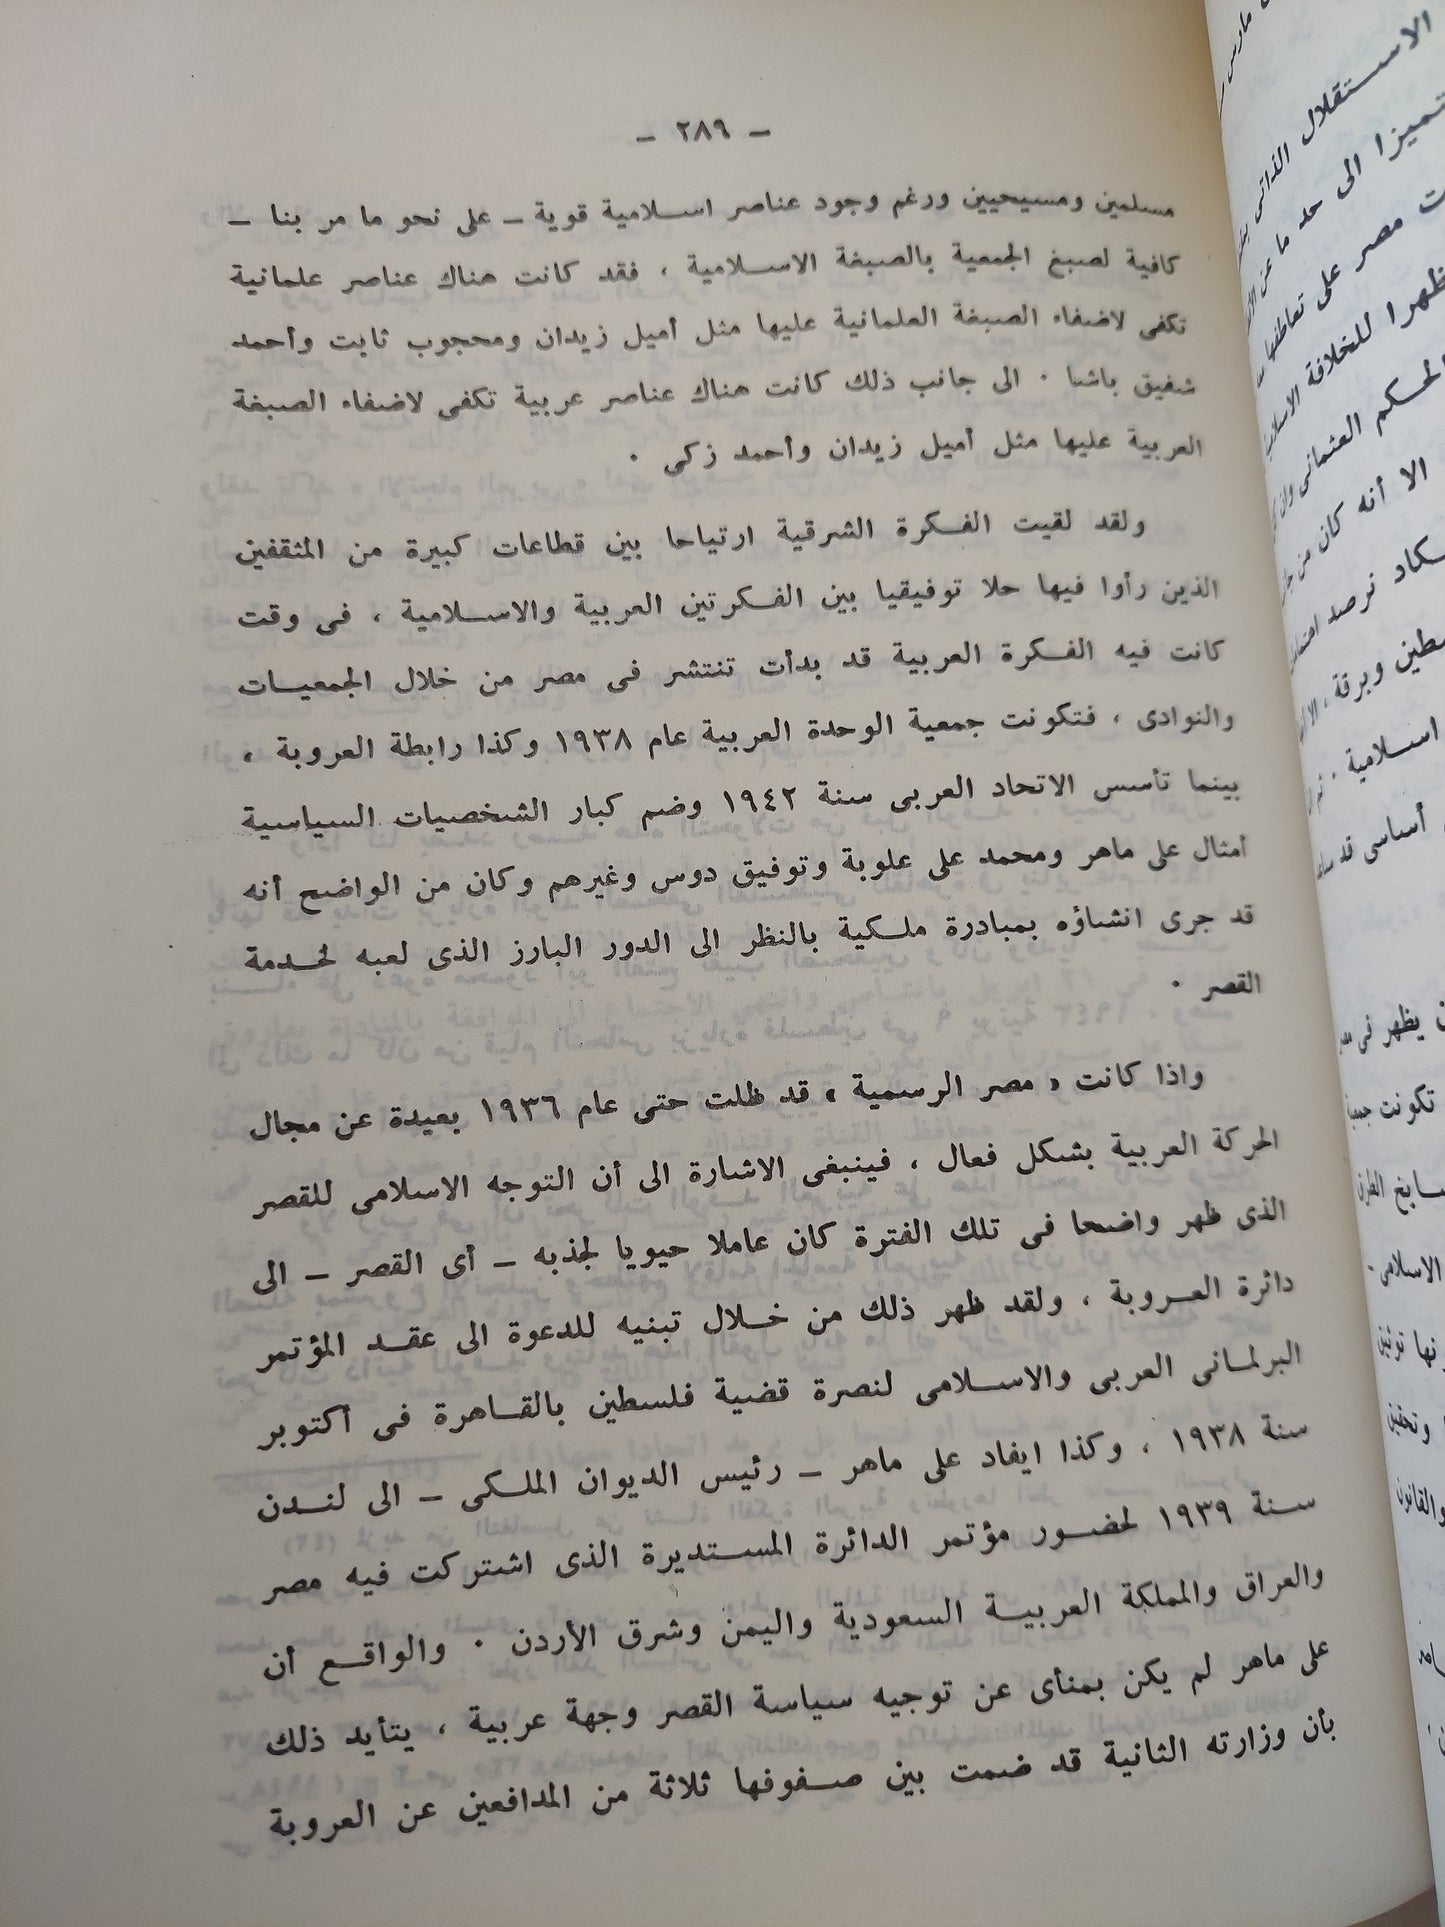 — ٢٨٩ —
مسلمين ومسيحيين ورغم وجود عناصر اسلامية قوية — على نحو ما مر بنا —
كافية لصبغ الجمعية بالصبغة الاسلامية ، فقد كانت هناك عناصر علمانية
تكفى لاضفاء الصبغة العلمانية عليها مثل أميل زيدان ومحجوب ثابت وأحمد
شفيق باشا · الى جانب ذلك كانت هناك عناصر عربية تكفى لاضفاء الصبغة
العربية عليها مثل أميل زيدان وأحمد زكى ·
ولقد لقيت الفكرة الشرقية ارتياحا بين قطاعات كبيرة من المثقفين
الذين رأوا فيها حلا توفيقيا بين الفكرتين العربية والاسلامية ، فى وقت
كانت فيه الفكرة العربية قد بدأت تنتشر فى مصر من خلال الجمعيات
والنوادى ، فتكونت جمعية الوحدة العربية عام ١٩٣٨ وكذا رابطة العروبة ،
بينما تأسس الاتحاد العربى سنة ١٩٤٢ وضم كبار الشخصيات السياسية
أمثال على ماهر ومحمد على علوبة وتوفيق دوس وغيرهم وكان من الواضح أنه
قد جرى انشاؤه بمبادرة ملكية بالنظر الى الدور البارز الذى لعبه لخدمة
القصر ·
واذا كانت « مصر الرسمية » قد ظلت حتى عام ١٩٣٦ بعيدة عن مجال
الحركة العربية بشكل فعال ، فينبغى الاشارة الى أن التوجه الاسلامى للقصر
الذى ظهر واضحا فى تلك الفترة كان عاملا حيويا لجذبه — أى القصر — الى
دائرة العروبة ، ولقد ظهر ذلك من خلال تبنيه للدعوة الى عقد المؤتمر
البرلمانى العربى والاسلامى لنصرة قضية فلسطين بالقاهرة فى أكتوبر
سنة ١٩٣٨ ، وكذا ايفاد على ماهر — رئيس الديوان الملكى — الى لندن
سنة ١٩٣٩ لحضور مؤتمر الدائرة المستديرة الذى اشتركت فيه مصر
والعراق والمملكة العربية السعودية واليمن وشرق الأردن · والواقع أن
على ماهر لم يكن بمنأى عن توجيه سياسة القصر وجهة عربية ، يتأيد ذلك
بأن وزارته الثانية قد ضمت بين صفوفها ثلاثة من المدافعين عن العروبة
الاستقلال الذاتى
تميزا الى حد ما عن
مصر على تعاطفها
للخلافة
الحكم العثمانى
الا أنه كان من
نرصد
وبرقة ،
اسلامية ·
أساسى قد
يظهر فى
تكونت
الاسلامى
وتحقيق
والقانون